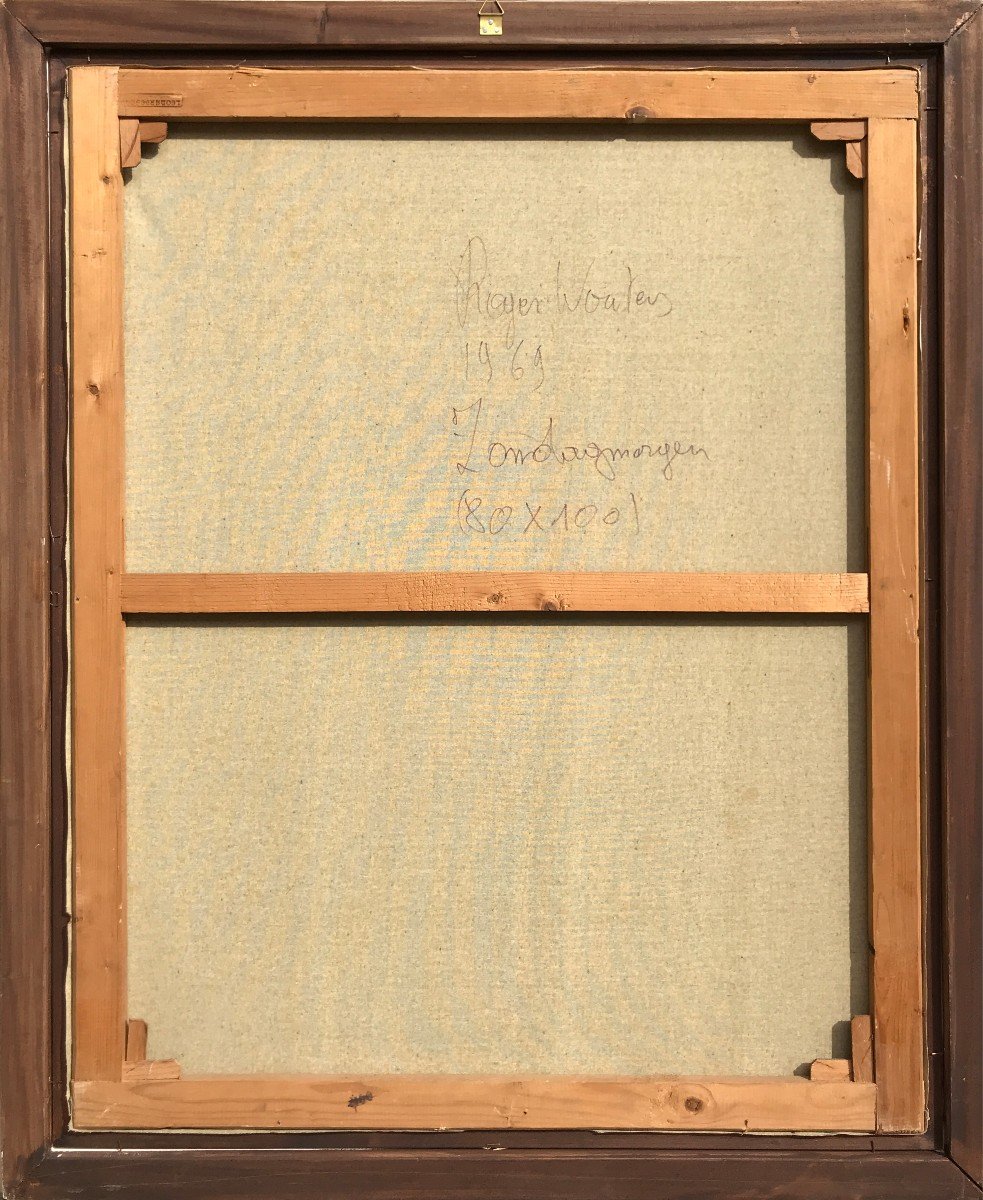 Roger Wouters
1969
Zondagmorgen
(80 X 100)